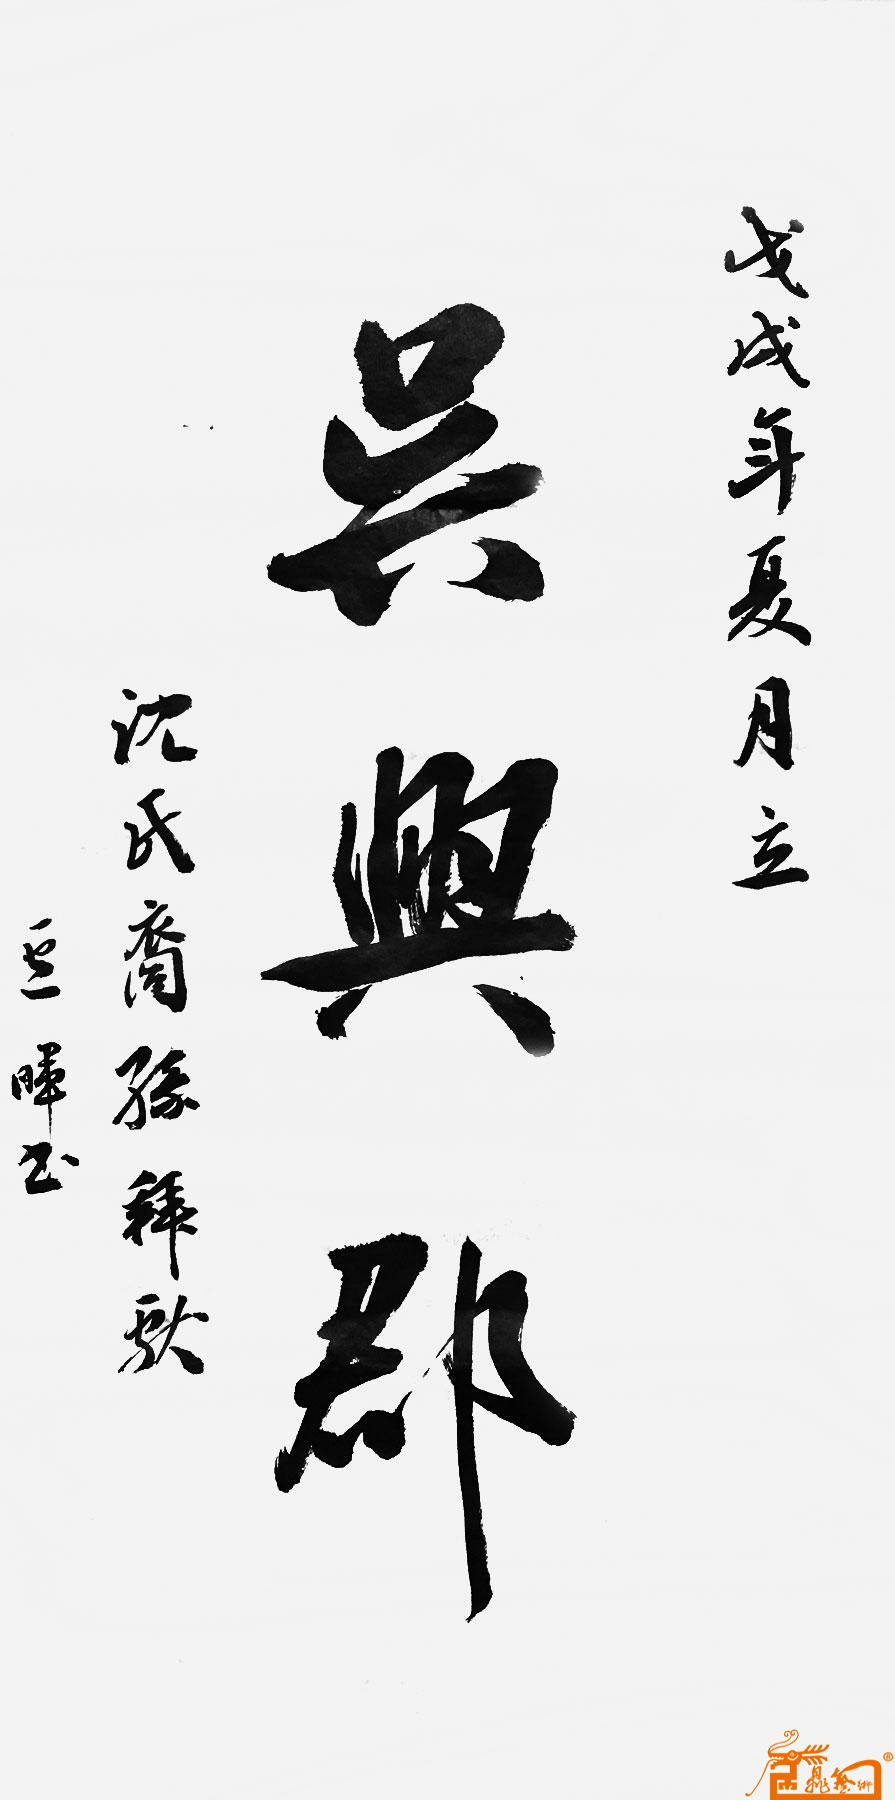 戊戌年夏月立
吳興郡
沈氏裔孫拜献
暉书